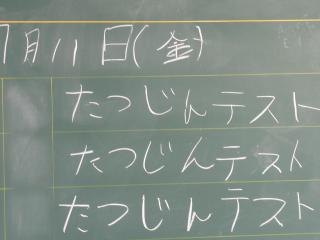 7月11日(金)
たつじんテスト
たつじんテスト
たつじんテスト